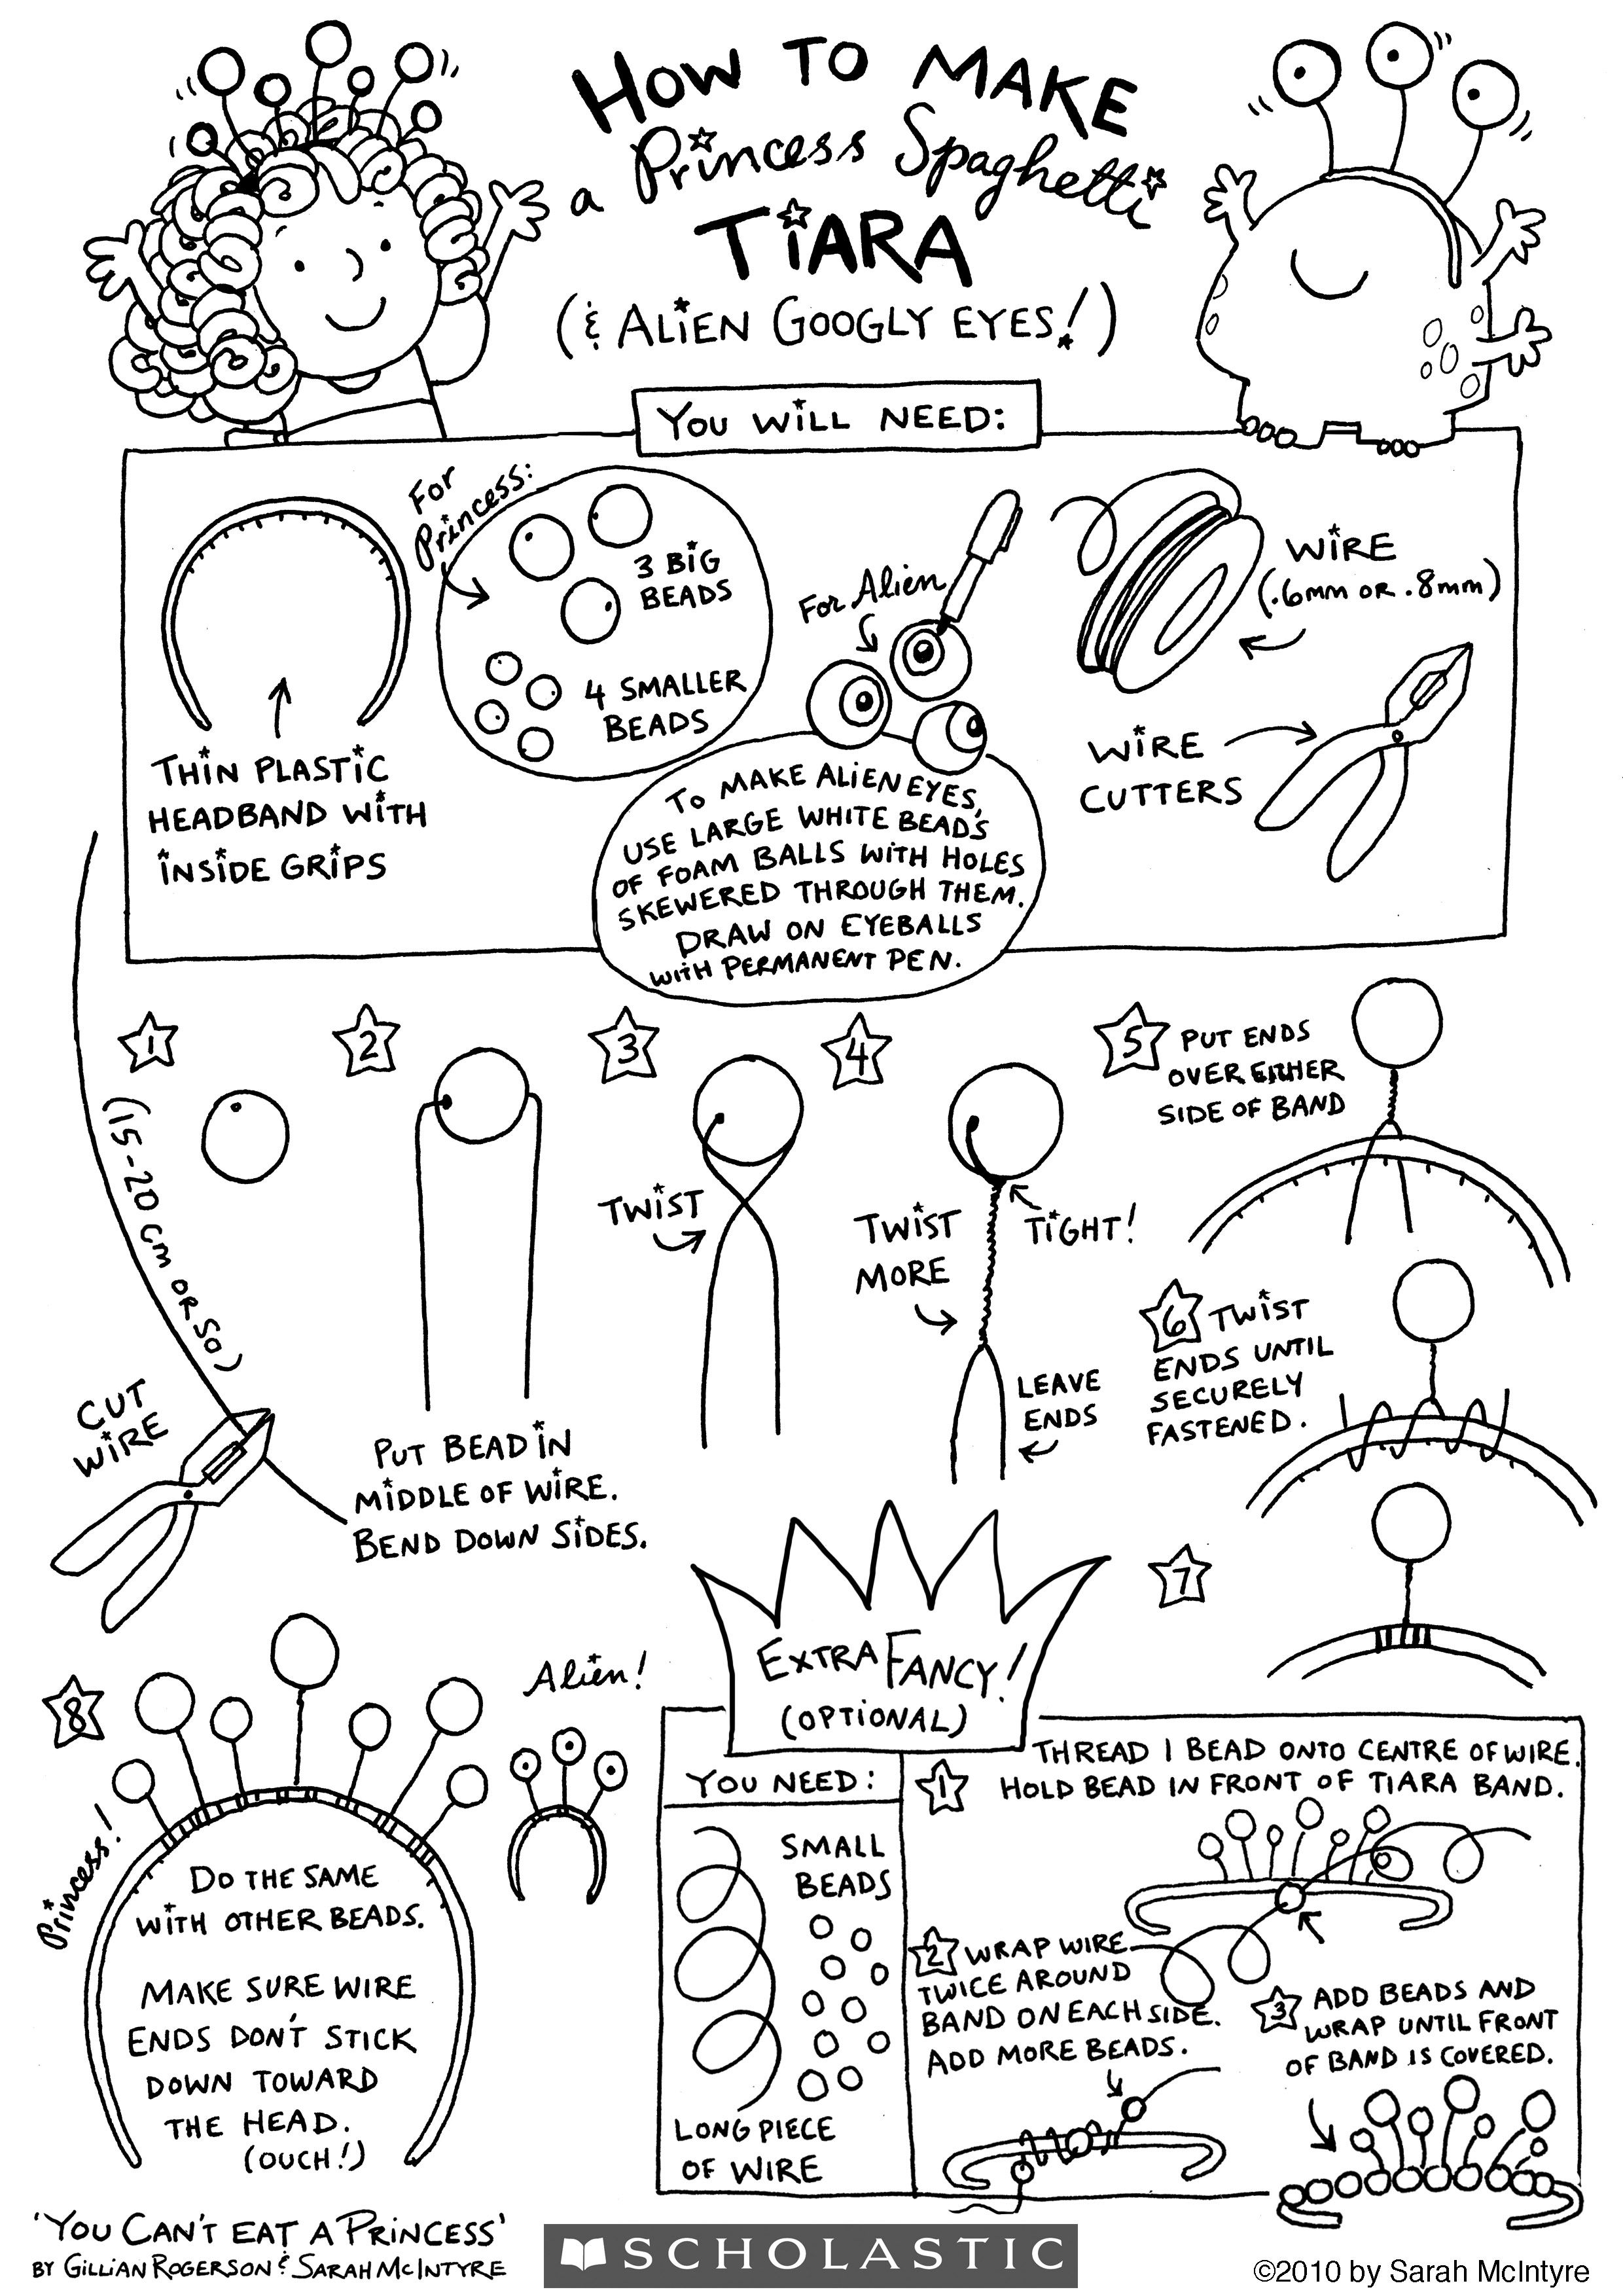 HOW TO MAKE
a Princess Spaghetti
TIARA
(& ALIEN GOOGLY EYES!)
YOU WILL NEED:
For
Princess:
3 BIG
BEADS
4 SMALLER
BEADS
THIN PLASTIC
HEADBAND WITH
INSIDE GRIPS
For Alien
TO MAKE ALIEN EYES,
USE LARGE WHITE BEADS
OF FOAM BALLS WITH HOLES
SKEWERED THROUGH THEM.
DRAW ON EYEBALLS
WITH PERMANENT PEN.
WIRE
(.6mm OR .8mm)
WIRE
CUTTERS
1
(15-20 cm OR SO)
CUT
WIRE
2
PUT BEAD IN
MIDDLE OF WIRE.
BEND DOWN SIDES.
3
TWIST
4
TWIST
MORE
TIGHT!
LEAVE
ENDS
5 PUT ENDS
OVER EITHER
SIDE OF BAND
6 TWIST
ENDS UNTIL
SECURELY
FASTENED.
7
8
Princess!
Alien!
DO THE SAME
WITH OTHER BEADS.
MAKE SURE WIRE
ENDS DON'T STICK
DOWN TOWARD
THE HEAD.
(OUCH!)
EXTRA FANCY!
(OPTIONAL)
YOU NEED:
SMALL
BEADS
LONG PIECE
OF WIRE
1 THREAD 1 BEAD ONTO CENTRE OF WIRE.
HOLD BEAD IN FRONT OF TIARA BAND.
2 WRAP WIRE
TWICE AROUND
BAND ON EACH SIDE.
ADD MORE BEADS.
3 ADD BEADS AND
WRAP UNTIL FRONT
OF BAND IS COVERED.
'YOU CAN'T EAT A PRINCESS'
BY GILLIAN ROGERSON & SARAH MCINTYRE
SCHOLASTIC
©2010 by Sarah McIntyre